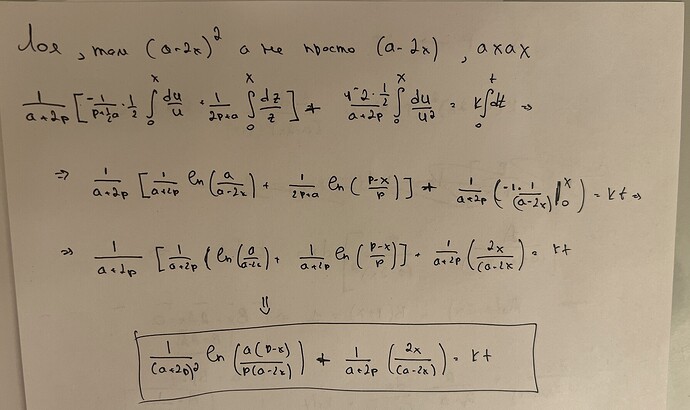 Лол, там (a-2x)² а не просто (a-2x), ахах
1/(a+2p) [ -1/(p+½a) · 1/2 ∫₀ˣ du/u + 1/(2p+a) ∫₀ˣ dz/z ] + 4·2·½/(a+2p) ∫₀ˣ du/u² = k∫₀ᵗdt ⇒
⇒ 1/(a+2p) [ 1/(a+2p) ln(a/(a-2x)) + 1/(2p+a) ln((p-x)/p) ] + 1/(a+2p) (-1·1/(a-2x) |₀ˣ) = kt ⇒
⇒ 1/(a+2p) [ 1/(a+2p) (ln(a/(a-2x)) + 1/(a+2p) ln((p-x)/p) ] + 1/(a+2p) (2x/(a-2x)) = kt
⇓
1/(a+2p)² ln(a(p-x)/p(a-2x)) + 1/(a+2p) (2x/(a-2x)) = kt